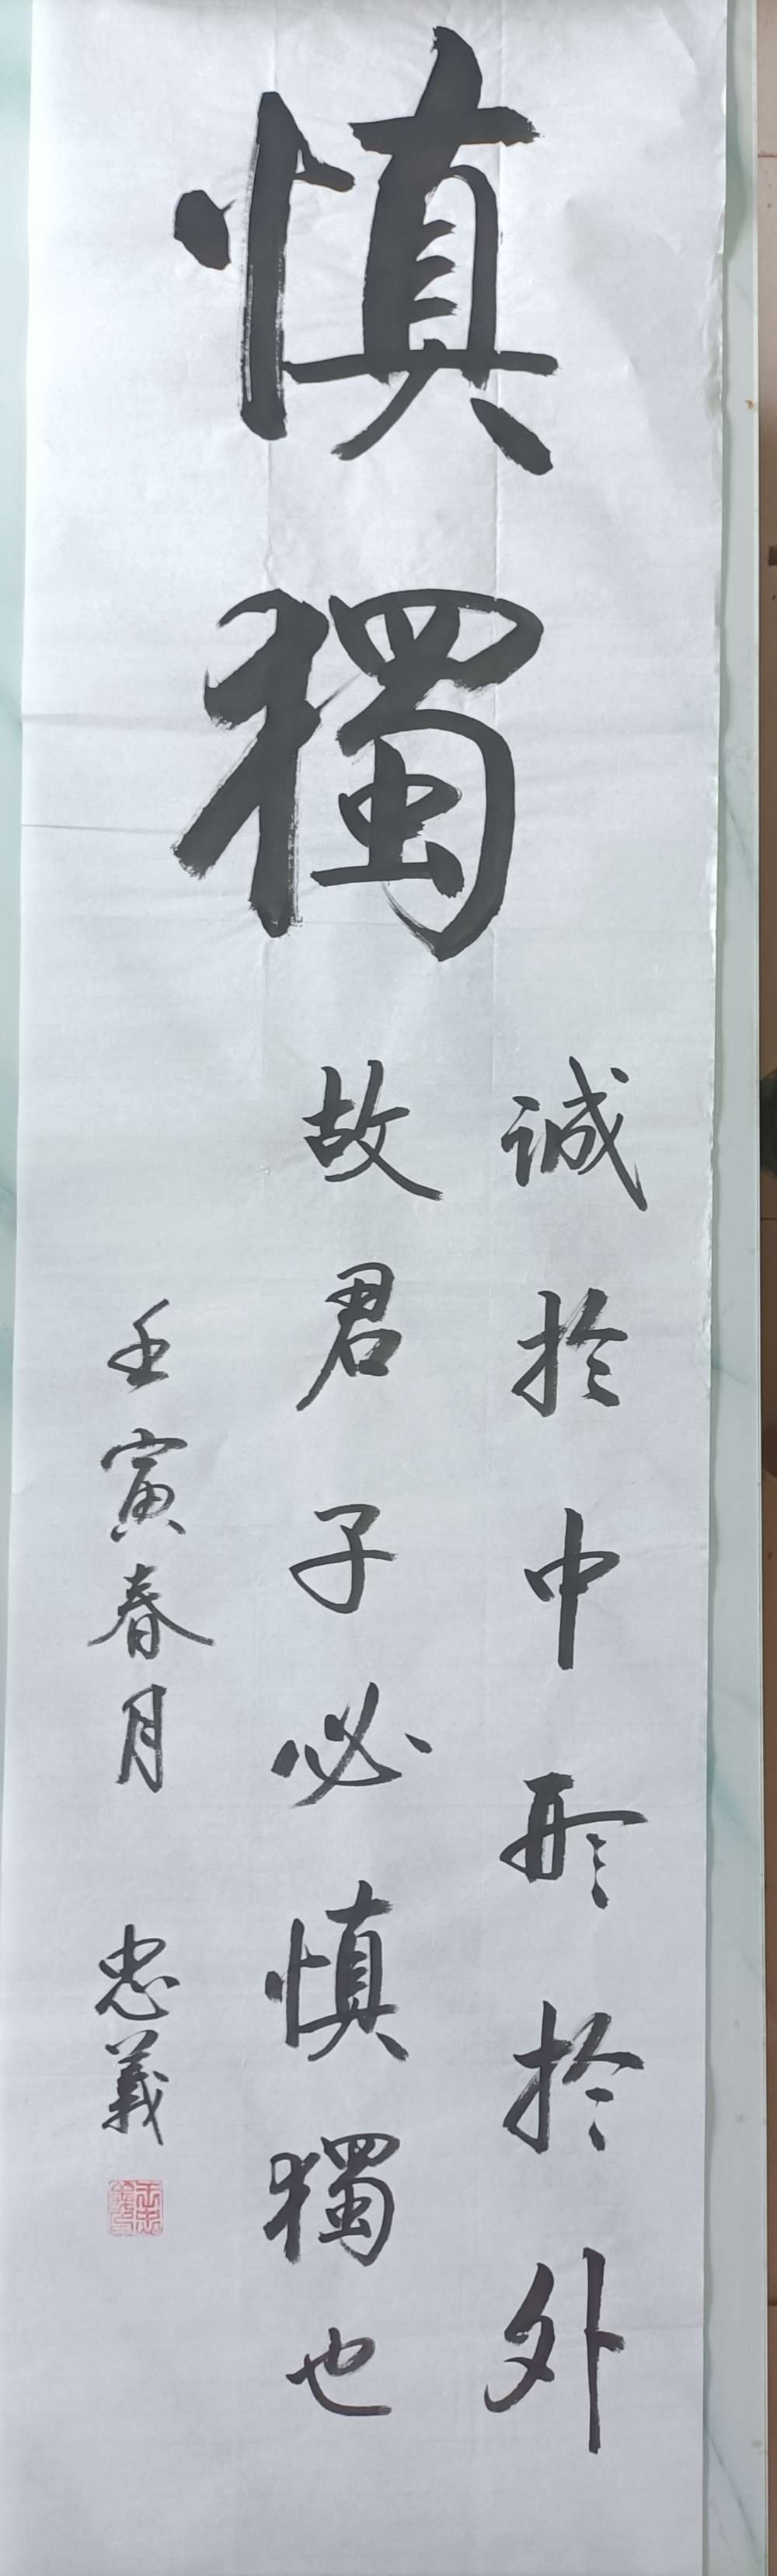 慎獨
诚於中形於外
故君子必慎獨也
壬寅春月 忠義